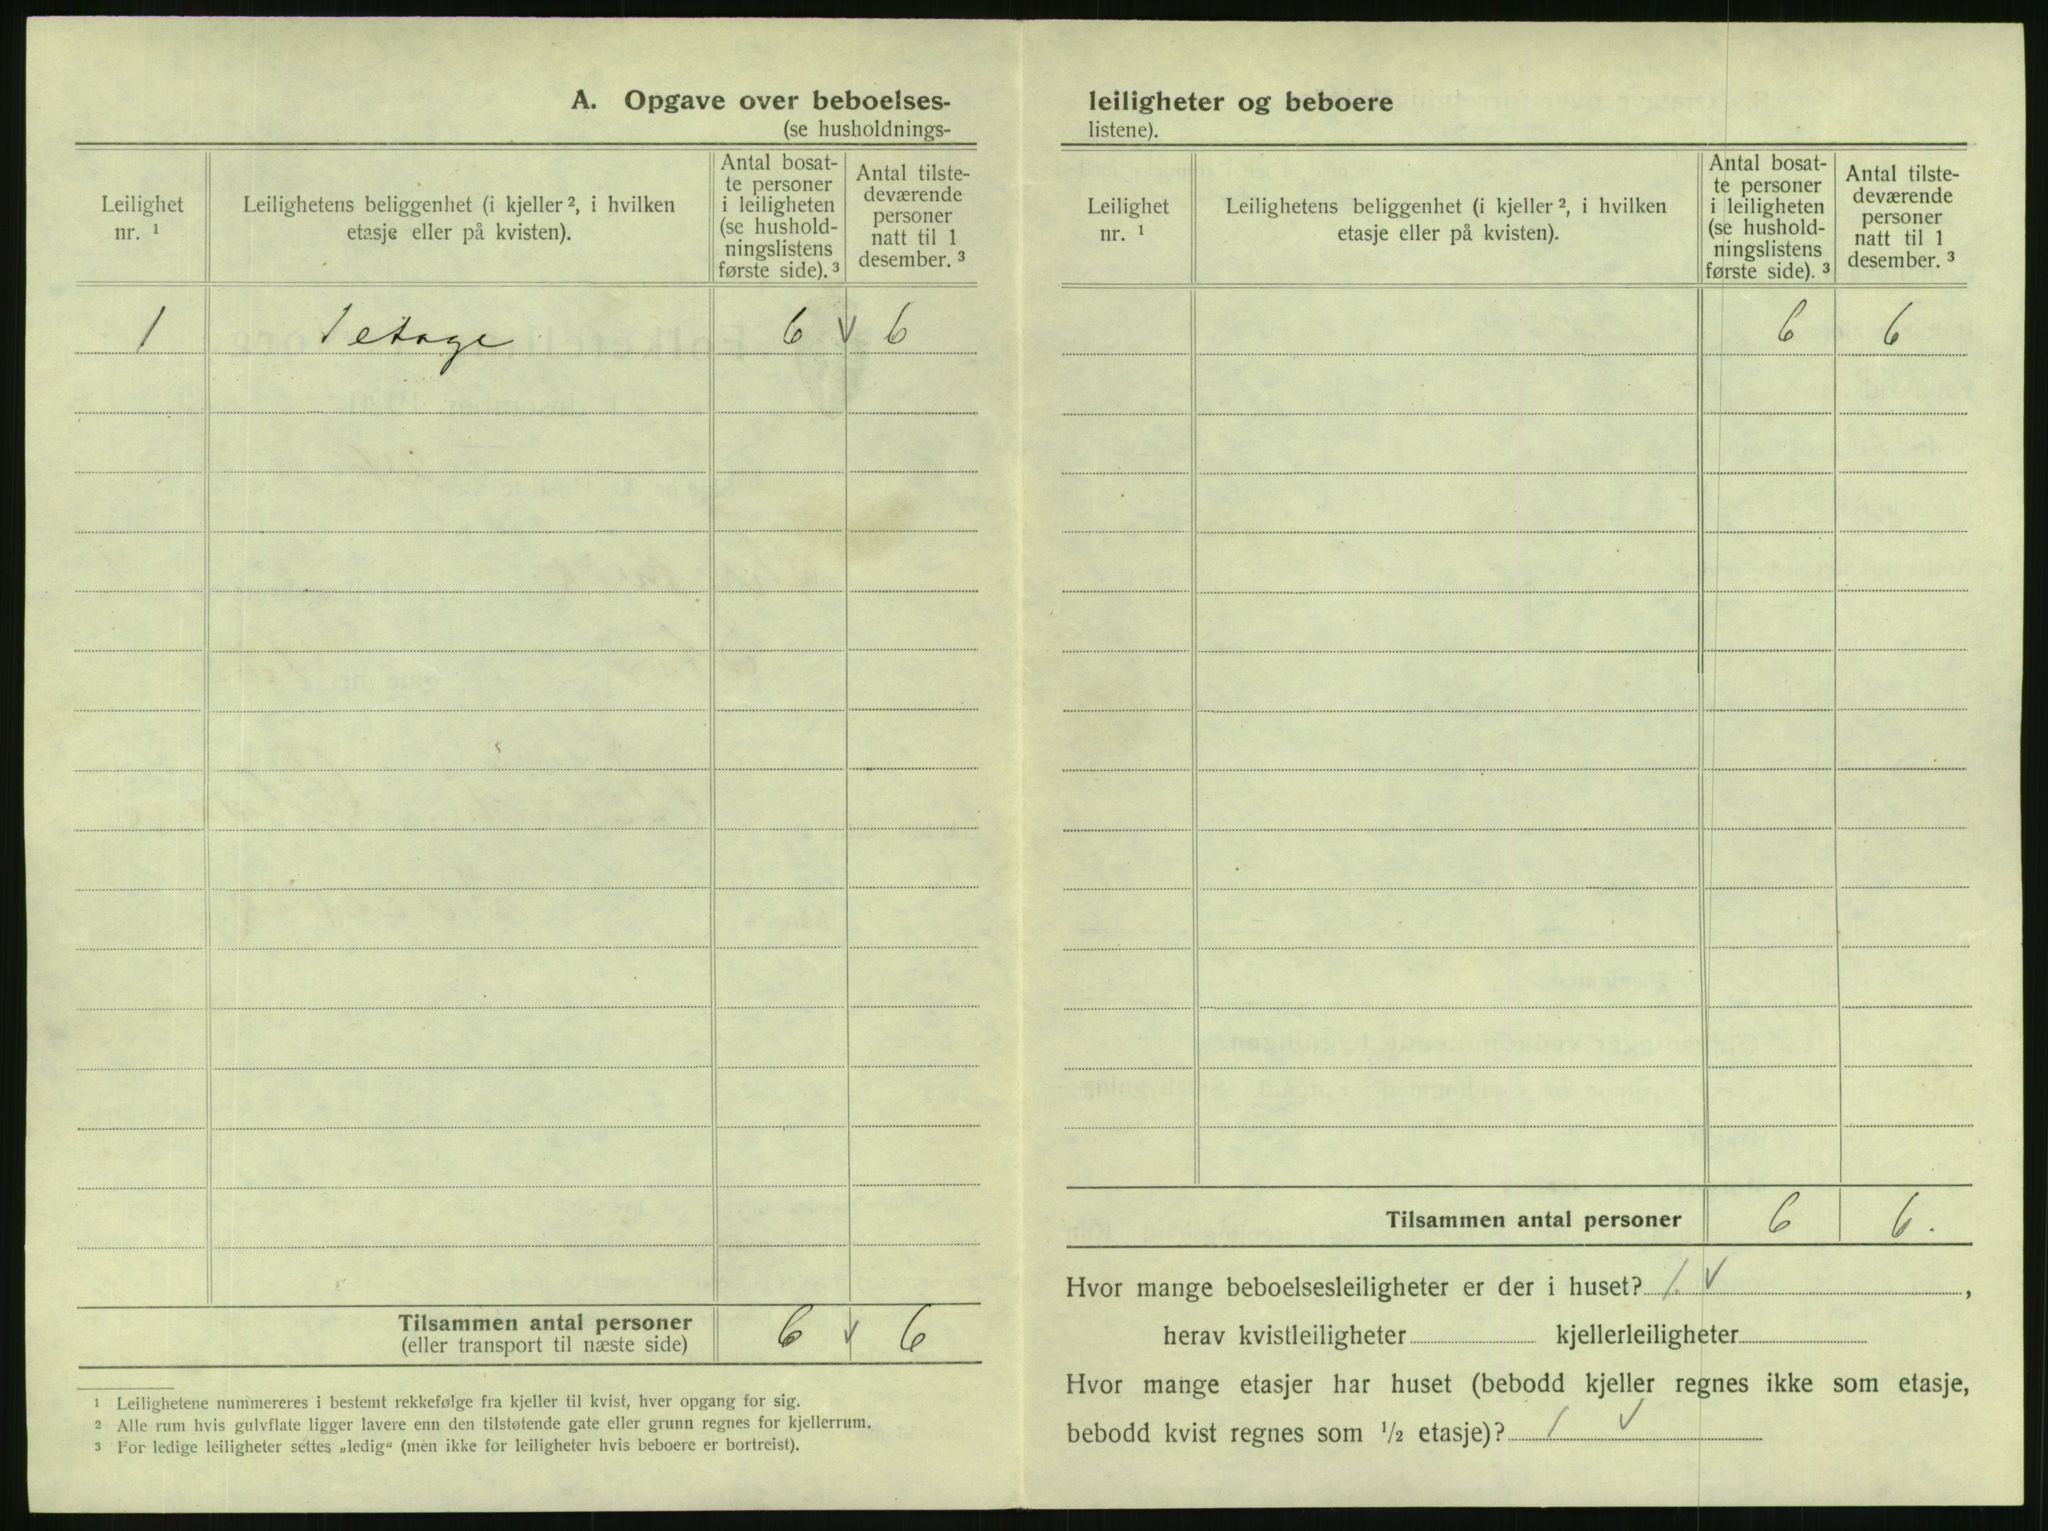 A. Opgave over beboelses-
(se husholdnings-
Leilighet
nr. ¹
Leilighetens beliggenhet (i kjeller ², i hvilken
etasje eller på kvisten).
Antal bosat-
te personer
i leiligheten
(se hushold-
ningslistens
første side). ³
Antal tilste-
deværende
personer
natt til 1
desember. ³
1 1 etage 6 √ 6
Tilsammen antal personer
(eller transport til næste side)
6 √ 6
¹ Leilighetene nummereres i bestemt rekkefølge fra kjeller til kvist, hver opgang for sig.
² Alle rum hvis gulvflate ligger lavere enn den tilstøtende gate eller grunn regnes for kjellerrum.
³ For ledige leiligheter settes „ledig“ (men ikke for leiligheter hvis beboere er bortreist).
leiligheter og beboere
listene).
Leilighet
nr. ¹
Leilighetens beliggenhet (i kjeller ², i hvilken
etasje eller på kvisten).
Antal bosat-
te personer
i leiligheten
(se hushold-
ningslistens
første side). ³
Antal tilste-
deværende
personer
natt til 1
desember. ³
6 6
Tilsammen antal personer 6 6.
Hvor mange beboelsesleiligheter er der i huset? 1. √ ,
herav kvistleiligheter kjellerleiligheter
Hvor mange etasjer har huset (bebodd kjeller regnes ikke som etasje,
bebodd kvist regnes som ½ etasje)? 1 √